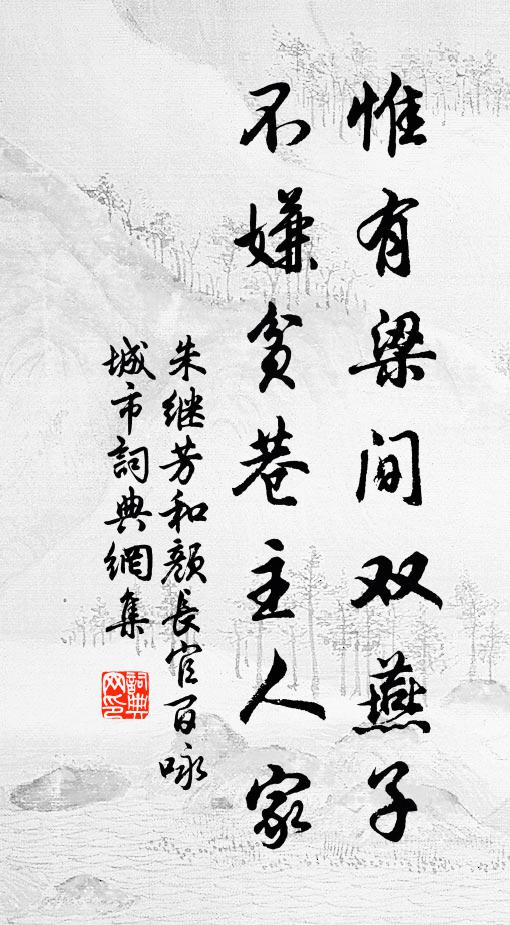 惟有梁间双燕子
不嫌贫巷主人家
朱继芳和颜长官百咏
城市詞典網集
詞典网印